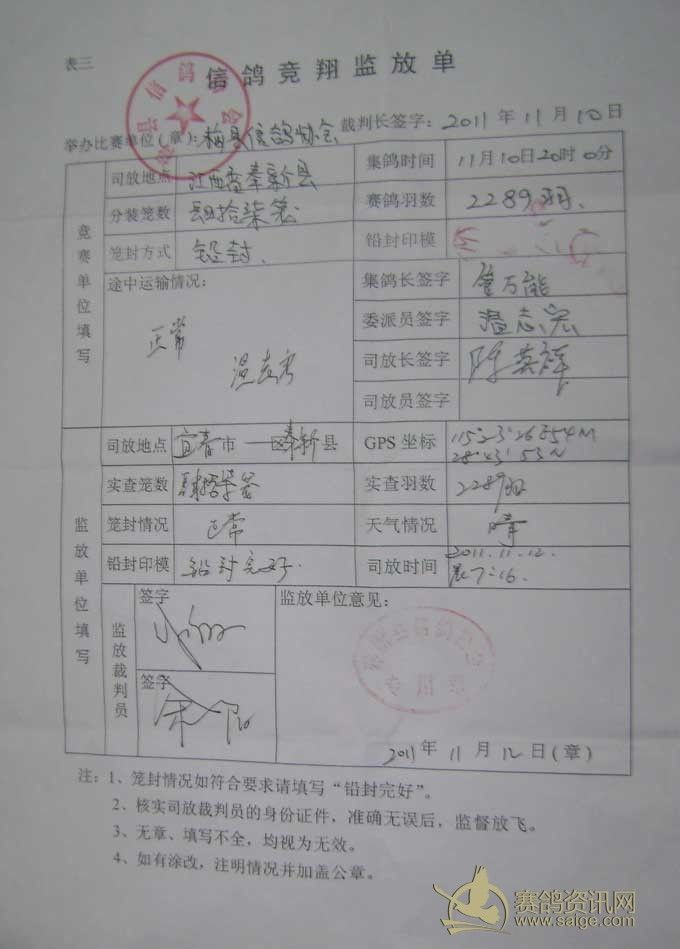 表三
信鸽竞翔监放单
举办比赛单位(章): 梅县信鸽协会 裁判长签字: 2011年11月10日
竞赛单位填写
司放地点 江西省奉新县 集鸽时间 11月10日20时0分
分装笼数 肆拾柒笼 赛鸽羽数 2289羽.
笼封方式 铅封. 铅封印模
途中运输情况: 集鸽长签字
正常 委派员签字 温志宏
温志宏 司放长签字
司放员签字
监放单位填写
司放地点 宜春市 区奉新县 GPS 坐标
实查笼数 肆拾柒笼 实查羽数 2289羽
笼封情况 正常 天气情况 晴
铅封印模 铅封完好. 司放时间 2011.11.12. 晨7:16.
监放裁判员 签字 监放单位意见:
签字
专用章
2011年11月12日(章)
注: 1、笼封情况如符合要求请填写“铅封完好”。
2、核实司放裁判员的身份证件，准确无误后，监督放飞。
3、无章、填写不全，均视为无效。
4、如有涂改，注明情况并加盖公章。
赛鸽资讯网
www.saige.com